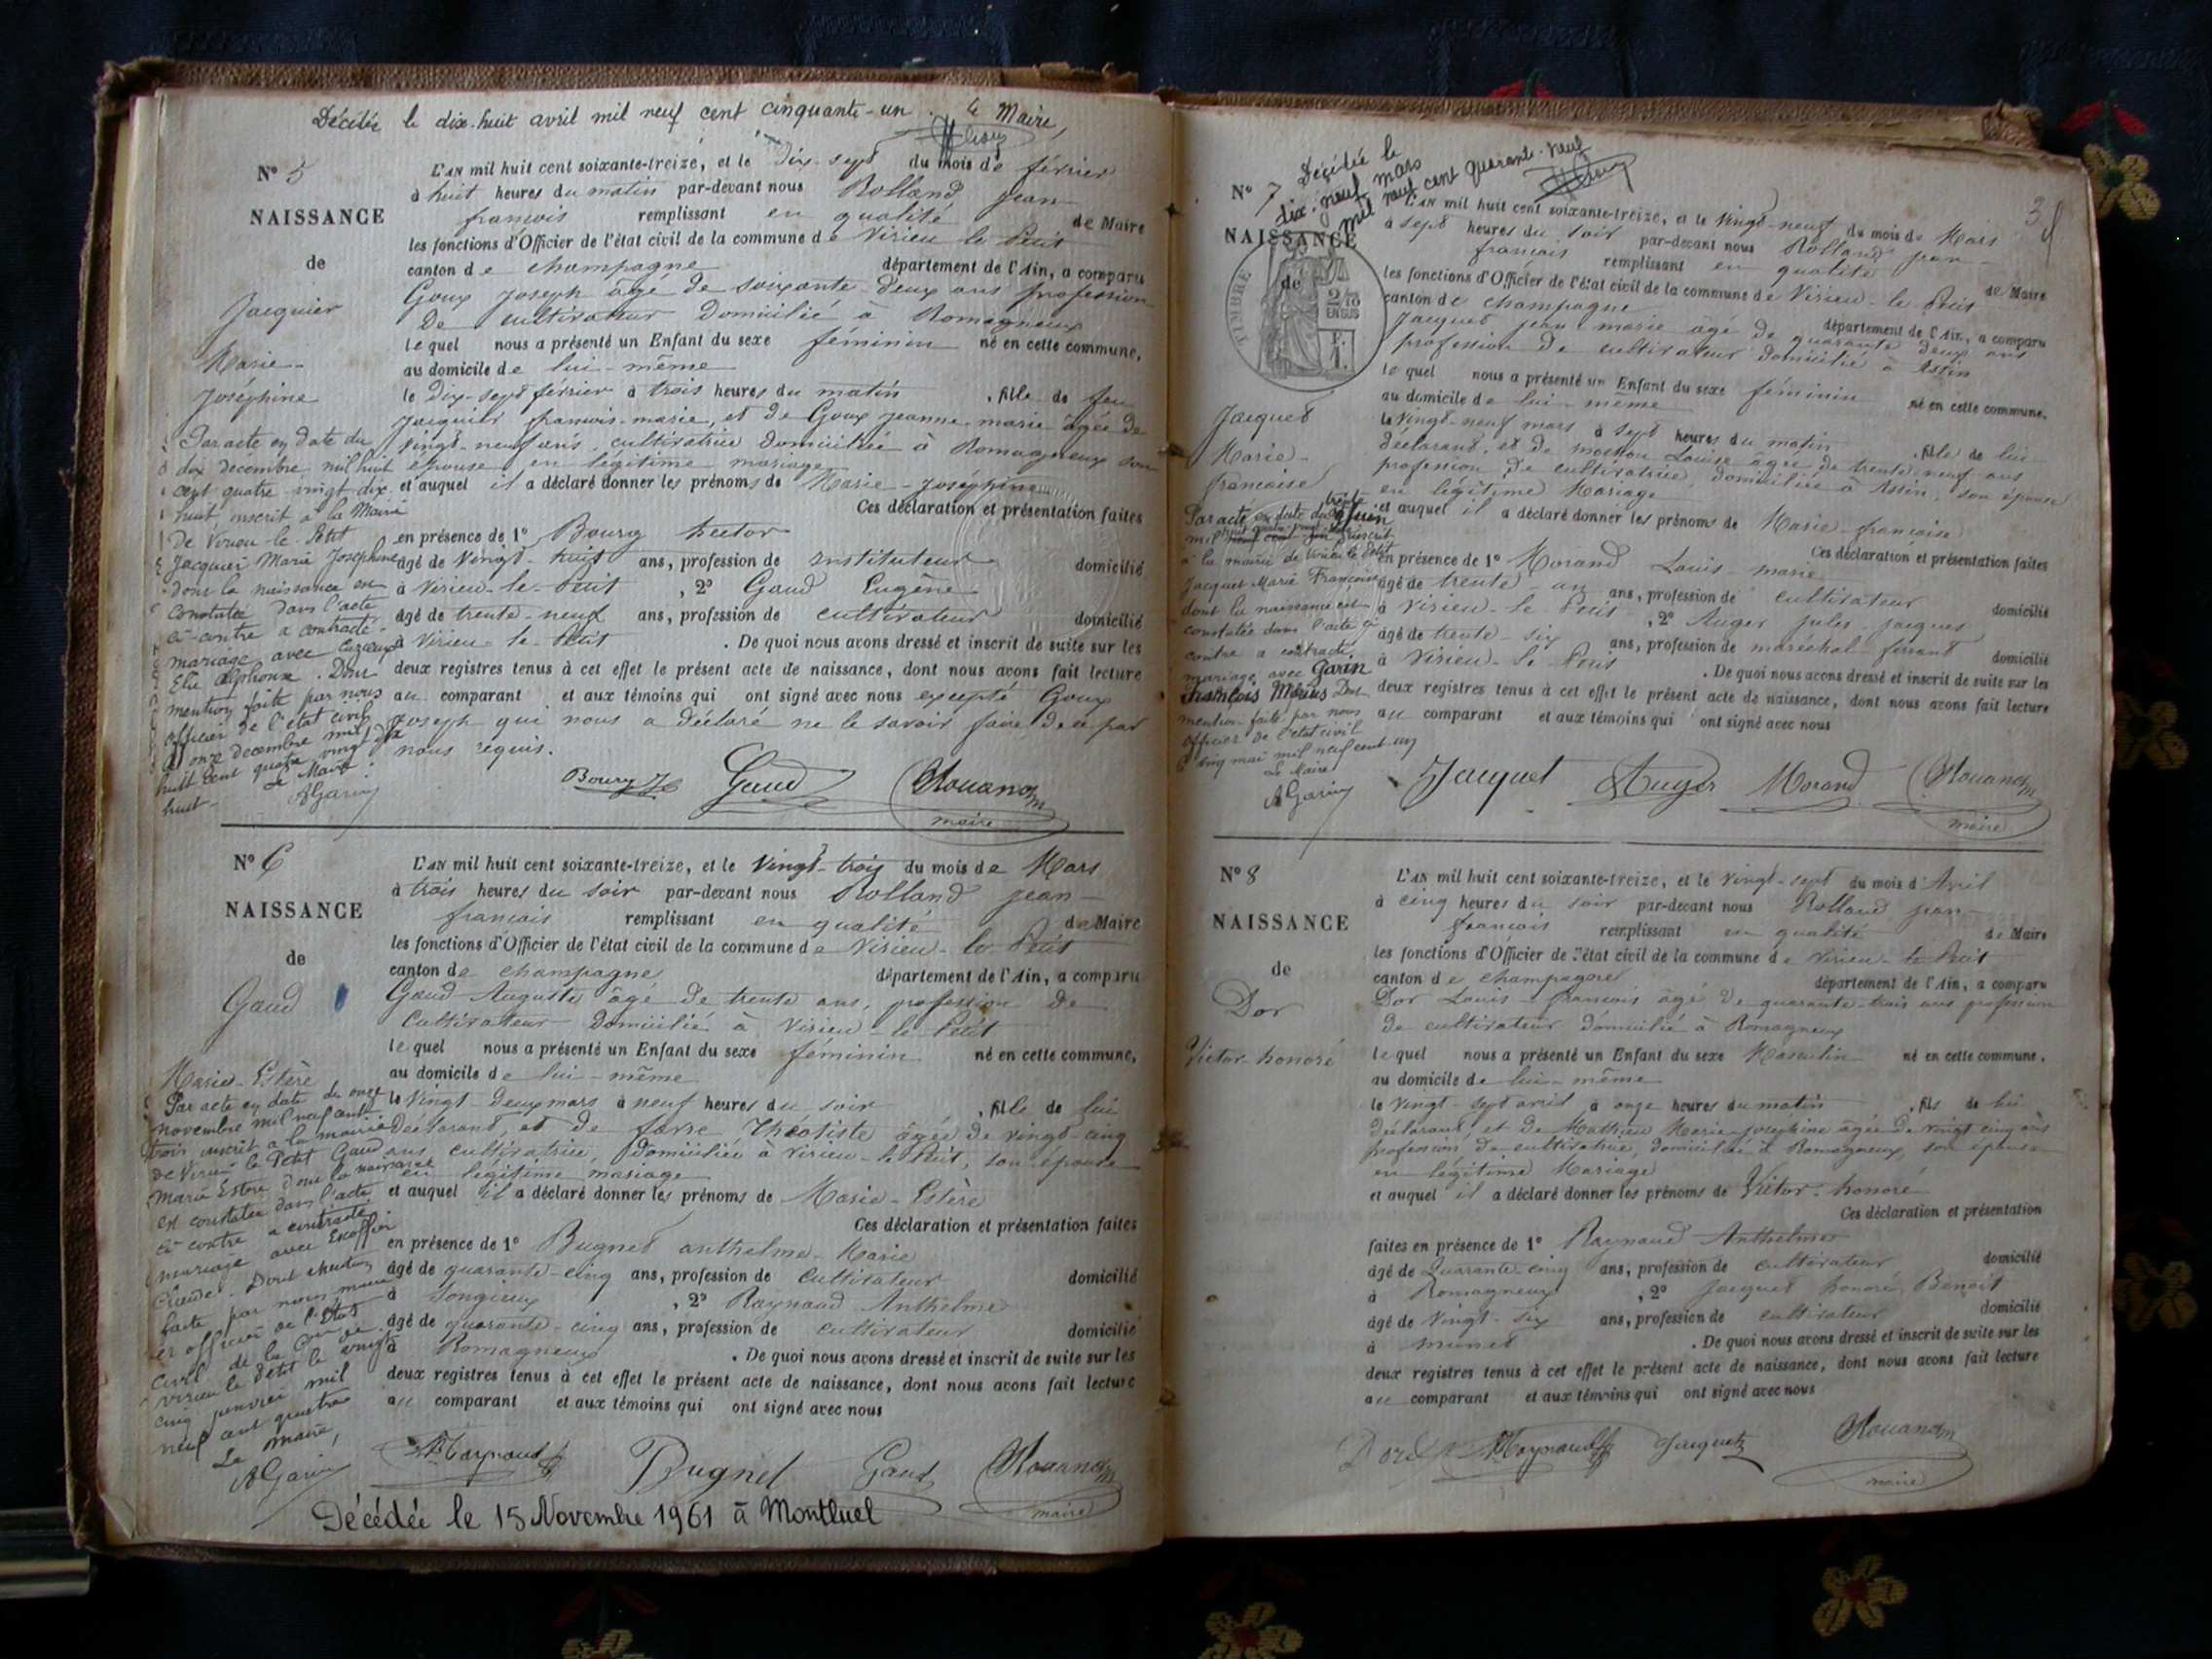 Décédée le dix-huit avril mil neuf cent cinquante-un. Le Maire,
N° 5
NAISSANCE
de
Jacquier
Marie-
Joséphine
Par acte en date du
dix décembre mil huit
cent quatre-vingt dix
huit inscrit à la Mairie
de Virieu-le-Petit
Jacquier Marie Joséphine
dont la naissance est
constatée dans l'acte
ci-contre a contracté
mariage avec
Elie Alphonse. Dont
mention faite par nous
officier de l'état civil
le onze décembre mil
huit cent quatre vingt dix
huit.
Le Maire
AGarin
L'AN mil huit cent soixante-treize, et le Dix-sept du mois de février
à huit heures du matin par-devant nous Rolland jean-
françois remplissant en qualité de Maire
les fonctions d'Officier de l'état civil de la commune de Virieu-le-Petit
canton de champagne département de l'Ain, a comparu
Goux joseph âgé de soixante-deux ans profession
De cultivateur Domicilié à Romagneux
lequel nous a présenté un Enfant du sexe féminin né en cette commune,
au domicile de lui-même
le Dix-sept février à trois heures du matin , fille de feu
jacquier françois-marie, et de Goux jeanne-marie âgée de
vingt-neuf ans, cultivatrice Domiciliée à Romagneux son
épouse en légitime mariage
et auquel il a déclaré donner les prénoms de Marie-joséphine
Ces déclaration et présentation faites
en présence de 1° Bourg hector
âgé de vingt-huit ans, profession de instituteur domicilié
à Virieu-le-Petit , 2° Gaud Eugène
âgé de trente-neuf ans, profession de cultivateur domicilié
à Virieu-le-Petit . De quoi nous avons dressé et inscrit de suite sur les
deux registres tenus à cet effet le présent acte de naissance, dont nous avons fait lecture
au comparant et aux témoins qui ont signé avec nous excepté Goux
joseph qui nous a déclaré ne le savoir faire, de ce par
nous requis.
Bourg Gaud
maire
N° 6
NAISSANCE
de
Gaud
Marie-Estère
Par acte en date du onze
novembre mil neuf cent
trois inscrit à la mairie
de Virieu le Petit Gaud
Marie Estere dont la naissance
est constatée dans l'acte
ci-contre a contracté
mariage avec Excoffier
Claude. Dont mention
faite par nous maire
et officier de l'état
civil de la Cne de
Virieu le Petit le vingt
cinq janvier mil
neuf cent quatre
Le maire,
AGarin
L'AN mil huit cent soixante-treize, et le vingt-trois du mois de Mars
à trois heures du soir par-devant nous Rolland jean-
françois remplissant en qualité de Maire
les fonctions d'Officier de l'état civil de la commune de Virieu-le-Petit
canton de champagne département de l'Ain, a comparu
Gaud Auguste âgé de trente ans, profession de
cultivateur Domicilié à Virieu-le-Petit
lequel nous a présenté un Enfant du sexe féminin né en cette commune,
au domicile de lui-même
le vingt-deux mars à neuf heures du soir , fille de lui
déclarant, et de favre Théotiste âgée de vingt-cinq
ans, cultivatrice, Domiciliée à Virieu-le-Petit, son épouse
en légitime mariage
et auquel il a déclaré donner les prénoms de Marie-Estère
Ces déclaration et présentation faites
en présence de 1° Bugnet anthelme-Marie
âgé de quarante-cinq ans, profession de cultivateur domicilié
à Songieux , 2° Raynaud Anthelme
âgé de quarante-cinq ans, profession de cultivateur domicilié
à Romagneux . De quoi nous avons dressé et inscrit de suite sur les
deux registres tenus à cet effet le présent acte de naissance, dont nous avons fait lecture
au comparant et aux témoins qui ont signé avec nous
Raynaud Bugnet Gaud
maire
Décédée le 15 Novembre 1961 à Montluel
N° 7
Décédée le
dix-neuf mars
mil neuf cent quarante-neuf
NAISSANCE
de
TIMBRE
2/10
EN SUS
F.
1.
Jacquet
Marie-
françoise
Par acte en date du trente
juin
mil
à la mairie de Virieu le Petit
Jacquet Marie Françoise
dont la naissance est
constatée dans l'acte ci
contre a contracté
mariage avec Garin
François Marius Dont
mention faite par nous
officier de l'état civil
cinq mai mil neuf cent un
Le Maire
AGarin
L'AN mil huit cent soixante-treize, et le vingt-neuf du mois de Mars
à sept heures du soir par-devant nous Rolland jean-
françois remplissant en qualité de Maire
les fonctions d'Officier de l'état civil de la commune de Virieu-le-Petit
canton de champagne département de l'Ain, a comparu
Jacquet jean-marie âgé de quarante deux ans
profession de cultivateur domicilié à Assin
lequel nous a présenté un Enfant du sexe féminin né en cette commune,
au domicile de lui-même
le vingt-neuf mars à sept heures du matin , fille de lui
déclarant, et de Louise âgée de trente-neuf ans
profession de cultivatrice, domiciliée à Assin, son épouse
en légitime Mariage
et auquel il a déclaré donner les prénoms de Marie-françoise
Ces déclaration et présentation faites
en présence de 1° Morand Louis-marie
âgé de trente-un ans, profession de cultivateur domicilié
à Virieu-le-Petit , 2° Auger jules-jacques
âgé de trente-six ans, profession de maréchal-ferrant domicilié
à Virieu-le-Petit . De quoi nous avons dressé et inscrit de suite sur les
deux registres tenus à cet effet le présent acte de naissance, dont nous avons fait lecture
au comparant et aux témoins qui ont signé avec nous
Jacquet Auger Morand
maire
N° 8
NAISSANCE
de
Dor
Victor-honoré
L'AN mil huit cent soixante-treize, et le vingt-sept du mois d'Avril
à cinq heures du soir par-devant nous Rolland jean-
françois remplissant en qualité de Maire
les fonctions d'Officier de l'état civil de la commune de Virieu-le-Petit
canton de champagne département de l'Ain, a comparu
Dor Louis-françois âgé de quarante-trois ans profession
de cultivateur domicilié à Romagneux
lequel nous a présenté un Enfant du sexe Masculin né en cette commune,
au domicile de lui-même
le vingt-sept avril à onze heures du matin , fils de lui
déclarant et de Mathieu Marie-josephine âgée de vingt cinq ans
profession de cultivatrice, domiciliée à Romagneux, son épouse
en légitime Mariage
et auquel il a déclaré donner les prénoms de Victor-honoré
Ces déclaration et présentation
faites en présence de 1° Raynaud Anthelme
âgé de Quarante-cinq ans, profession de cultivateur domicilié
à Romagneux , 2° Jacquet honoré Benoit
âgé de vingt-six ans, profession de cultivateur domicilié
à munet . De quoi nous avons dressé et inscrit de suite sur les
deux registres tenus à cet effet le présent acte de naissance, dont nous avons fait lecture
au comparant et aux témoins qui ont signé avec nous
Raynaud Jacquet
maire